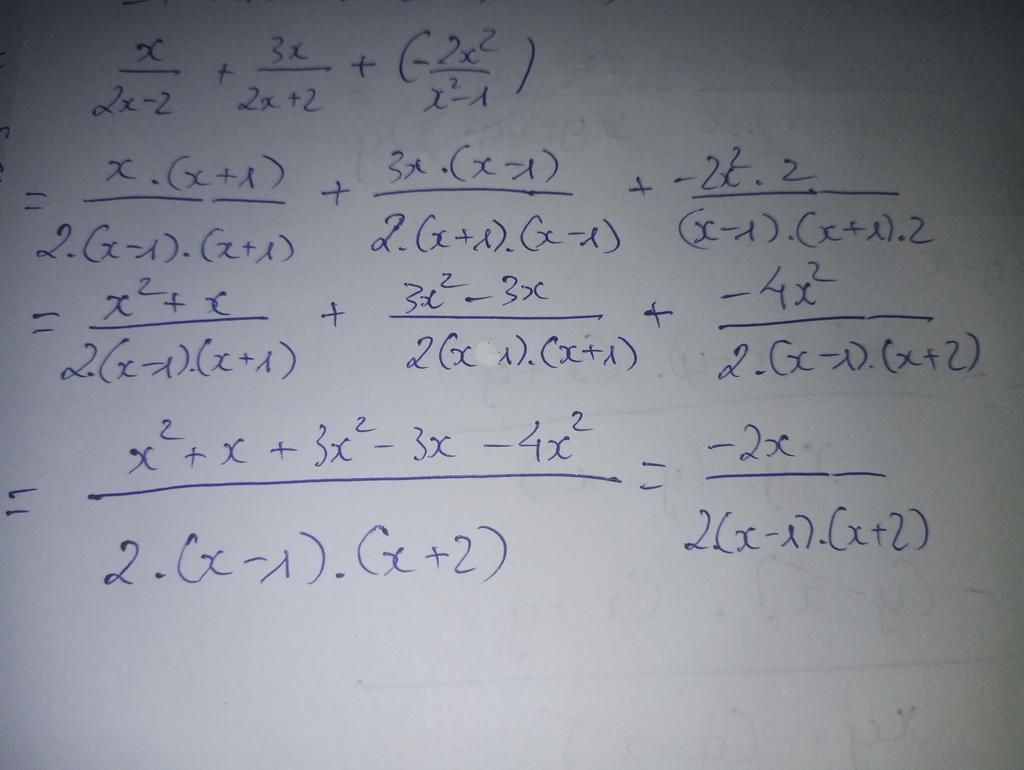 x/(2x-2) + 3x/(2x+2) + (-2x²/(x²-1))
= x.(x+1)/2.(x-1).(x+1) + 3x.(x-1)/2.(x+1).(x-1) + -2x².2/(x-1).(x+1).2
= x²+x/2.(x-1)(x+1) + 3x²-3x/2(x 1).(x+1) + -4x²/2.(x-1).(x+2)
= x²+x+3x²-3x-4x²/2.(x-1).(x+2) = -2x/2(x-1).(x+2)